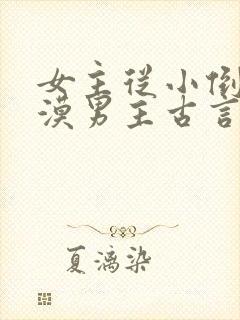 女主从小倒
漠男主古言
夏漓染